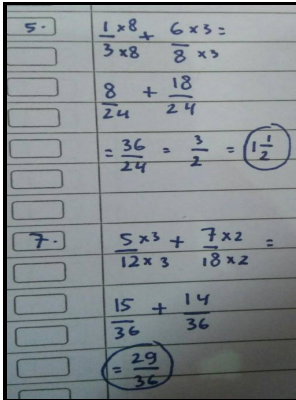 5. 1×8/3×8 + 6×3/8×3 =
8/24 + 18/24
= 36/24 = 3/2 = 1 1/2
7. 5×3/12×3 + 7×2/18×2 =
15/36 + 14/36
= 29/36